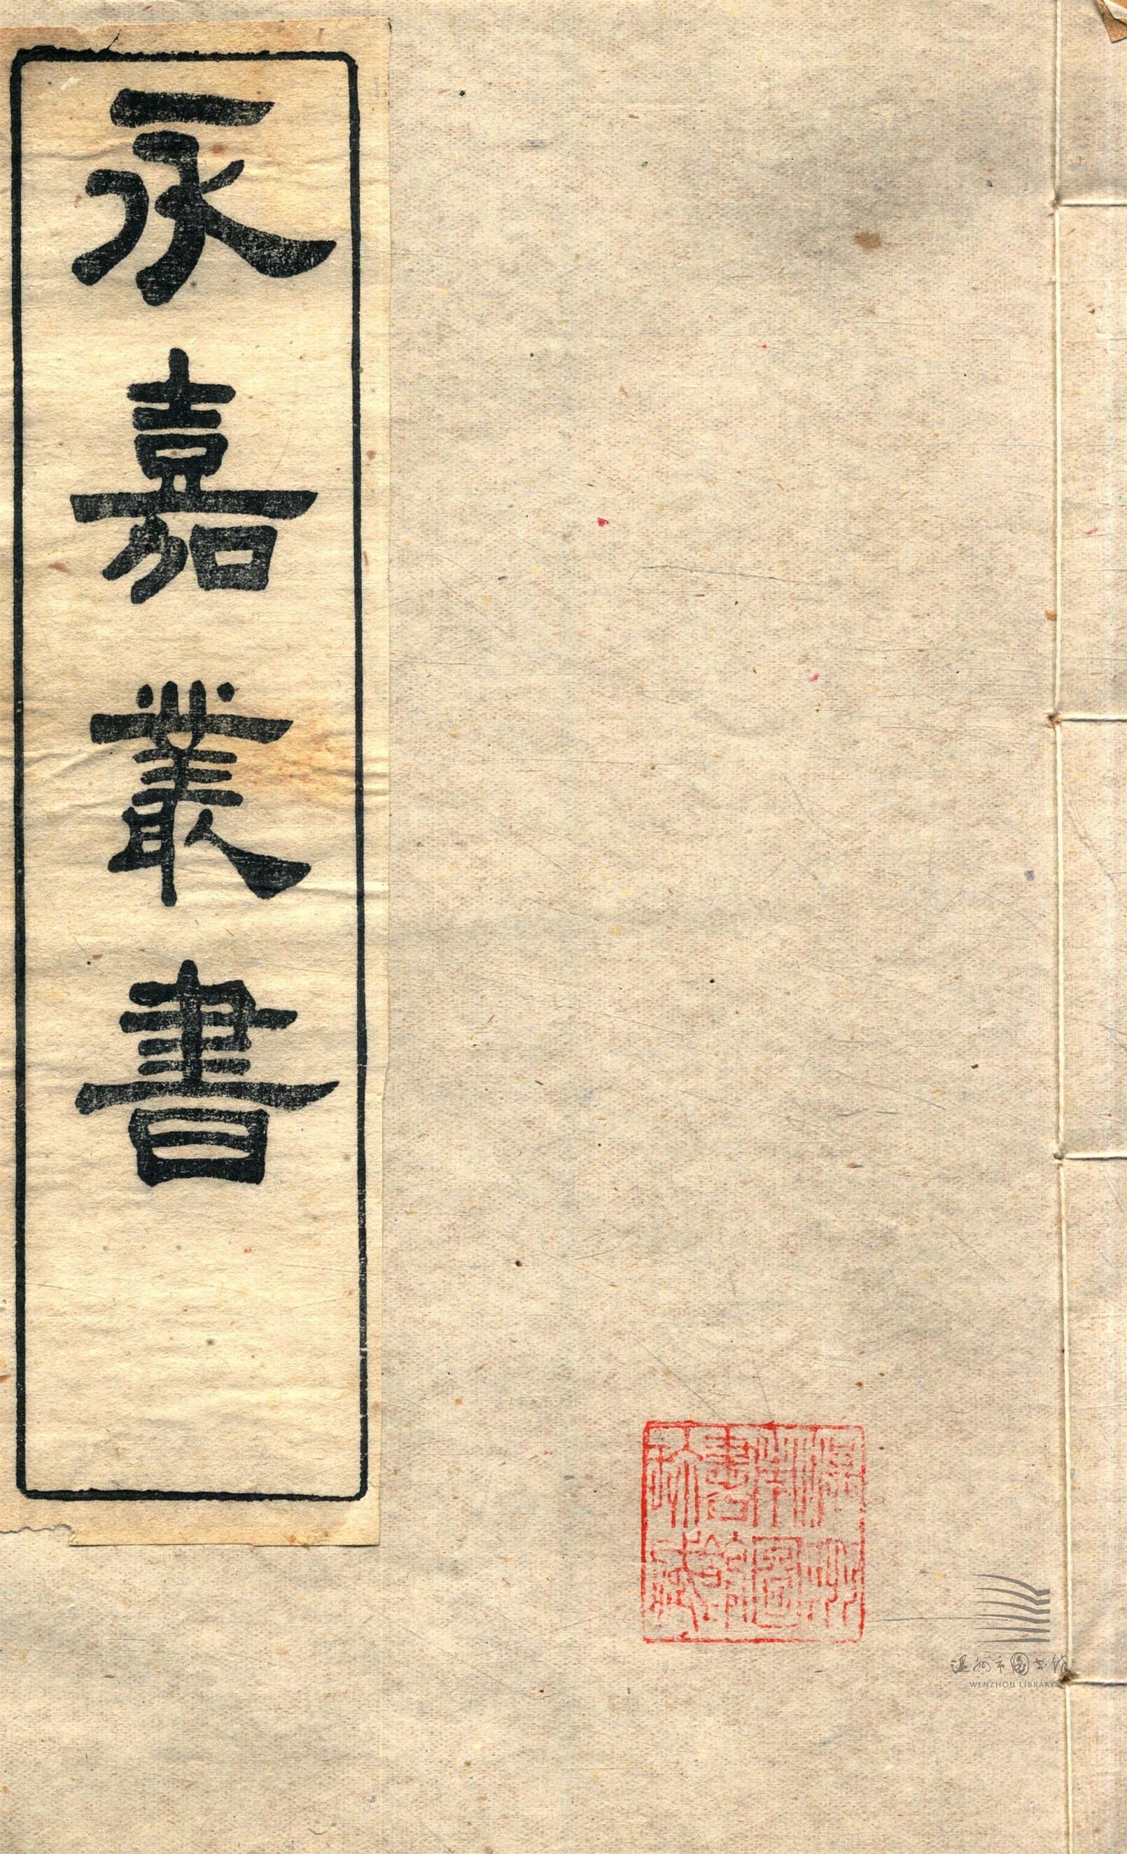 永嘉叢書
温州市圖書館
WENZHOU LIBRARY